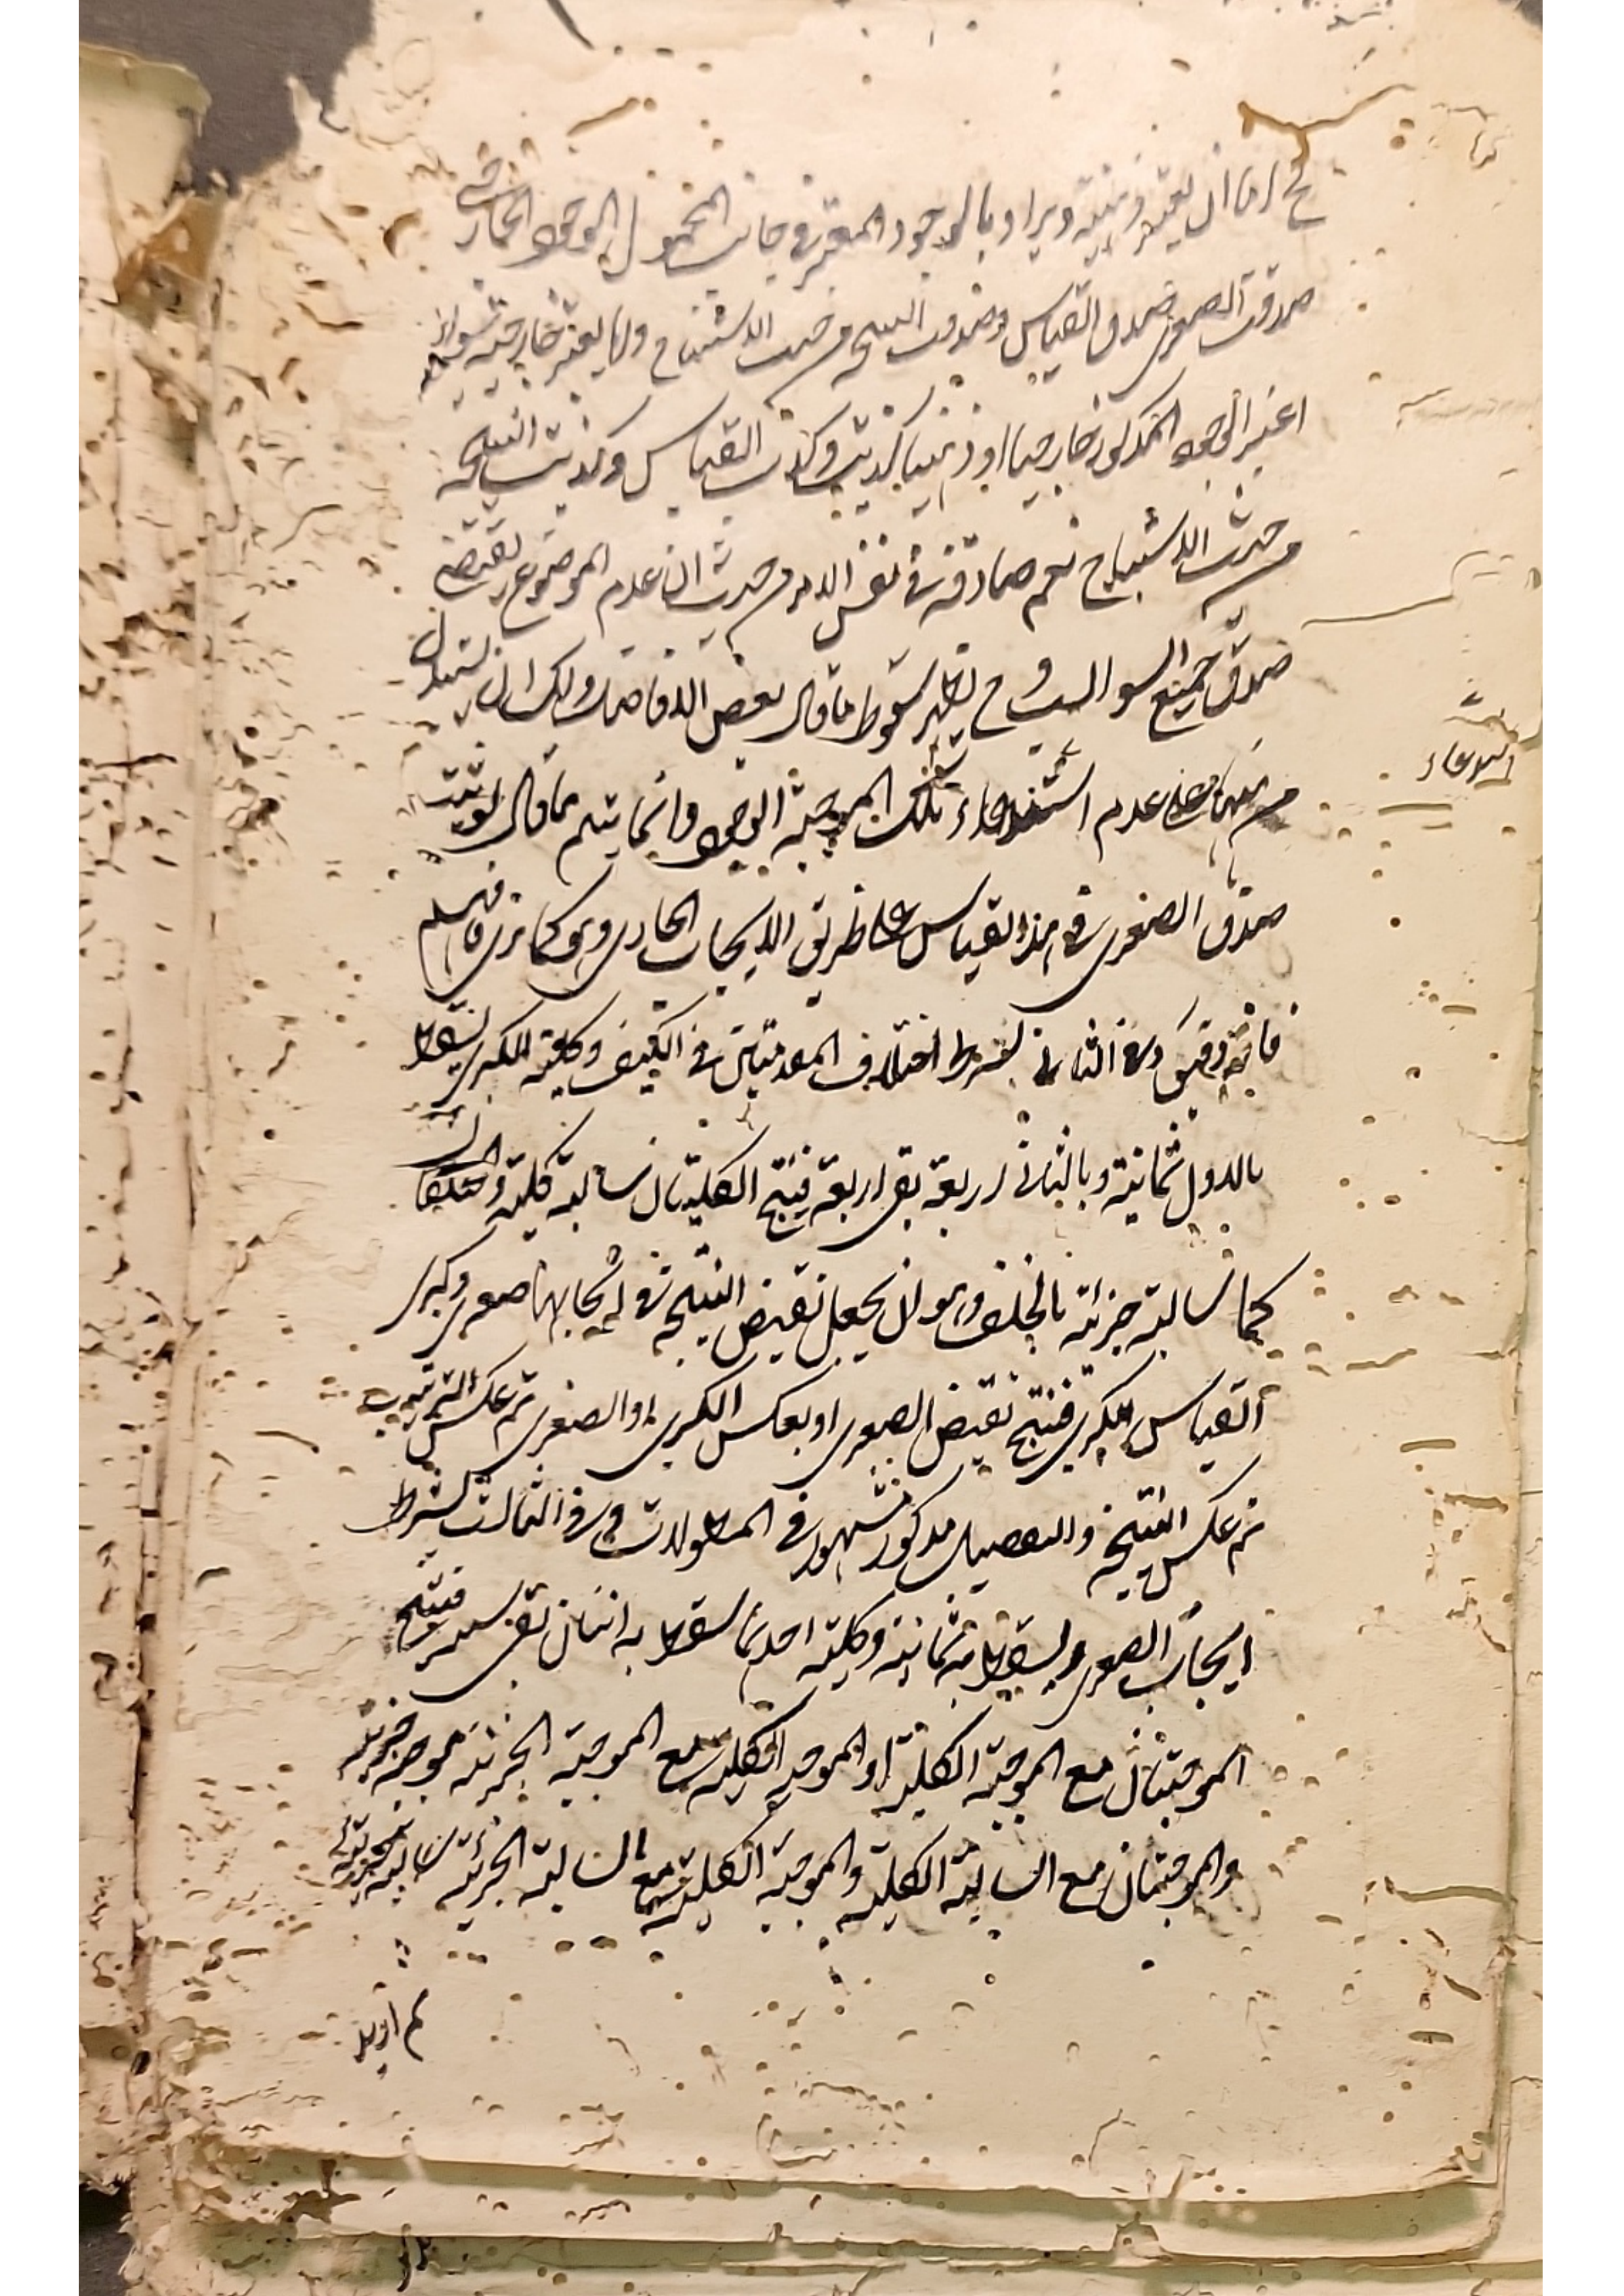 ح اما ان يعتبر ذهنية ويراد بالوجود المعتبر في جانب المحمول الوجود الخارجي
صدقت الصغرى وصدق القياس وصدقت النتيجة من حيث الاستنتاج واما يعتبر خارجية سواء
اعتبر الوجود المذكور خارجيا او ذهنيا كذبت وكذب القياس وكذبت النتيجة
من حيث الاستنتاج نعم صادقة في نفس الامر من حيث ان عدم الموضوع يقتضي
صدق جميع السوالب وح يظهر سقوط ما قال بعض الافاضل ولك ان تستدل
من ههنا على عدم استدعاء تلك الموجبة الوجود وانما يتم ما قال لو ثبت
صدق الصغرى في هذا القياس على طريق الايجاب الخارجي وهو كما ترى فافهم
فانه دقيق وفي الثاني بشرط اختلاف المقدمتين في الكيف وكلية الكبرى يسقط
بالاول ثمانية وبالثاني اربعة بقي اربعة فينتج الكليتان سالبة كلية والمختلفتان
كما سالبة جزئية بالخلف وهو ان يجعل نقيض النتيجة في ايجابها صغرى وكبرى
القياس الكبرى فينتج نقيض الصغرى او بعكس الكبرى او الصغرى ثم عكس الترتيب
ثم عكس النتيجة والتفصيل مذكور مشهور في المطولات وفي الثالث بشرط
ايجاب الصغرى ويسقط به ثمانية وكلية احدهما يسقط به اثنان بقي ستة فينتج
الموجبتان مع الموجبة الكلية او الموجبة الكلية مع الموجبة الجزئية موجبة جزئية
والموجبتان مع السالبة الكلية والموجبة الكلية مع السالبة الجزئية سالبة جزئية
استدعاء